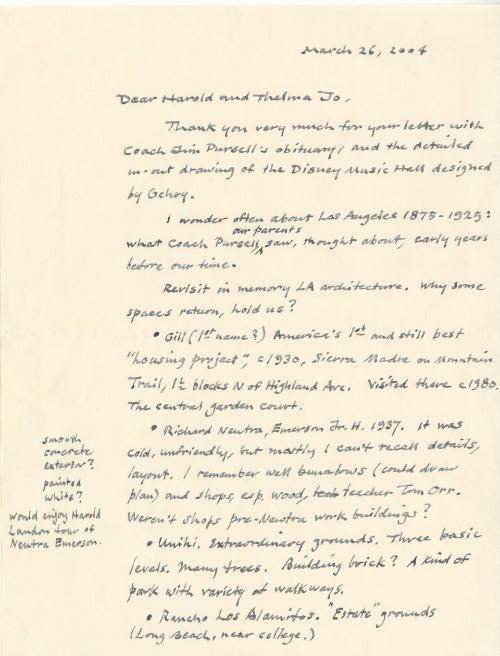 March 26, 2004
Dear Harold and Thelma Jo,
Thank you very much for your letter with
Coach Jim Pursell's obituary, and the detailed
in-out drawing of the Disney Music Hall designed
by Gehry.
I wonder often about Los Angeles 1875-1925:
our parents
what Coach Pursell, saw, thought about, early years
before our time.
Revisit in memory LA architecture. Why some
spaces return, hold us?
• Gill (1st name?) America's 1st and still best
"housing project", c1930, Sierra Madre on Mountain
Trail, 1½ blocks N of Highland Ave. Visited there c1980.
The central garden court.
• Richard Neutra, Emerson Jr. H. 1937. It was
cold, unfriendly, but mostly I can't recall details,
layout. I remember well bunalows (could draw
plan) and shops, esp. wood, tech teacher Tom Orr.
Weren't shops pre-Neutra work buildings?
smooth
concrete
exterior?
painted
white?
would enjoy Harold
Landon tour of
Neutra Emerson.
• Unihi. Extraordinary grounds. Three basic
levels. Many trees. Building brick? A kind of
park with variety of walkways.
• Rancho Los Alamitos. "Estate" grounds
(Long Beach, near college.)